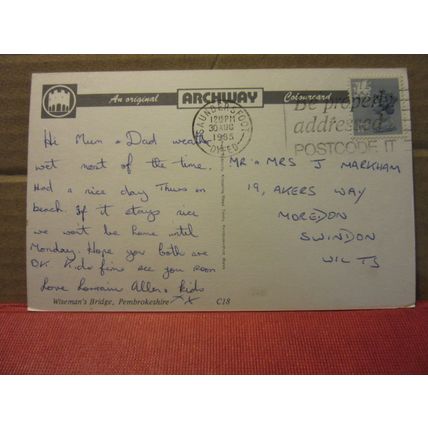 An original ARCHWAY Colourcard
SAUNDERSFOOT
12 15 PM
30 AUG
1985
DYFED
Be properly
addressed
POSTCODE IT
Hi Mum & Dad weather
wet most of the time.
Had a nice day Thurs on
beach. If it stays nice
we won't be home until
Monday. Hope you both are
OK. Kids fine see you soon
Love Lorraine Allen & kids
XX
MR & MRS J MARKHAM
19, AKERS WAY
MOREDON
SWINDON
WILTS
Wiseman's Bridge, Pembrokeshire
C18